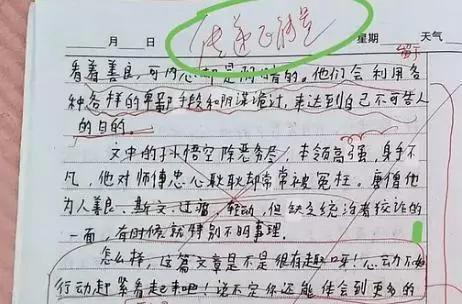 月 日 传递正能量 星期 天气
看着善良，可内心却是阴暗的。他们会利用各
种各样的卑鄙手段和阴谋诡计，来达到自己不可告人
的目的。
文中的孙悟空除恶务尽，本领高强，身手不
凡，他对师傅忠心耿耿却常常被冤枉。唐僧他
为人善良、斯文，但缺乏统治者狡诈的
一面，有时候就特别不明事理。
怎么样，这篇文章是不是很有趣呀！心动不如
行动赶紧看起来吧！说不定你还能体会到更多的